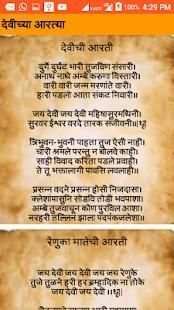 4:29 PM
देवीच्या आरत्या
देवीची आरती
दुर्गे दुर्घट भारी तुजविण संसारी।
अनाथ नाथे अम्बे करुणा विस्तारी।
वारी वारी जन्म मरणांते वारी।
हारी पडलो आता संकट निवारी॥
जय देवी जय देवी महिषासुरमथिनी।
सुरवर ईश्वर वरदे तारक संजीवनी॥धृ॥
त्रिभुवन-भुवनी पाहता तुज ऐसी नाही।
चारी श्रमले परन्तु न बोलवे काही।
साही विवाद करिता पडले प्रवाही।
ते तू भक्तालागी पावसि लवलाही॥
प्रसन्न वदने प्रसन्न होसी निजदासा।
क्लेशांपासुनि सोडवि तोडी भवपाशा।
अम्बे तुजवाचून कोण पुरविल आशा।
नरहरी तल्लिन झाला पदपंकजलेशा॥
रेणुका मातेची आरती
जय देवी जय देवी जय जय रेणुके
तुजे तुळने हरी हर ब्रम्हादिक ना तोके
जय देवी जय देवी ॥धृ॥